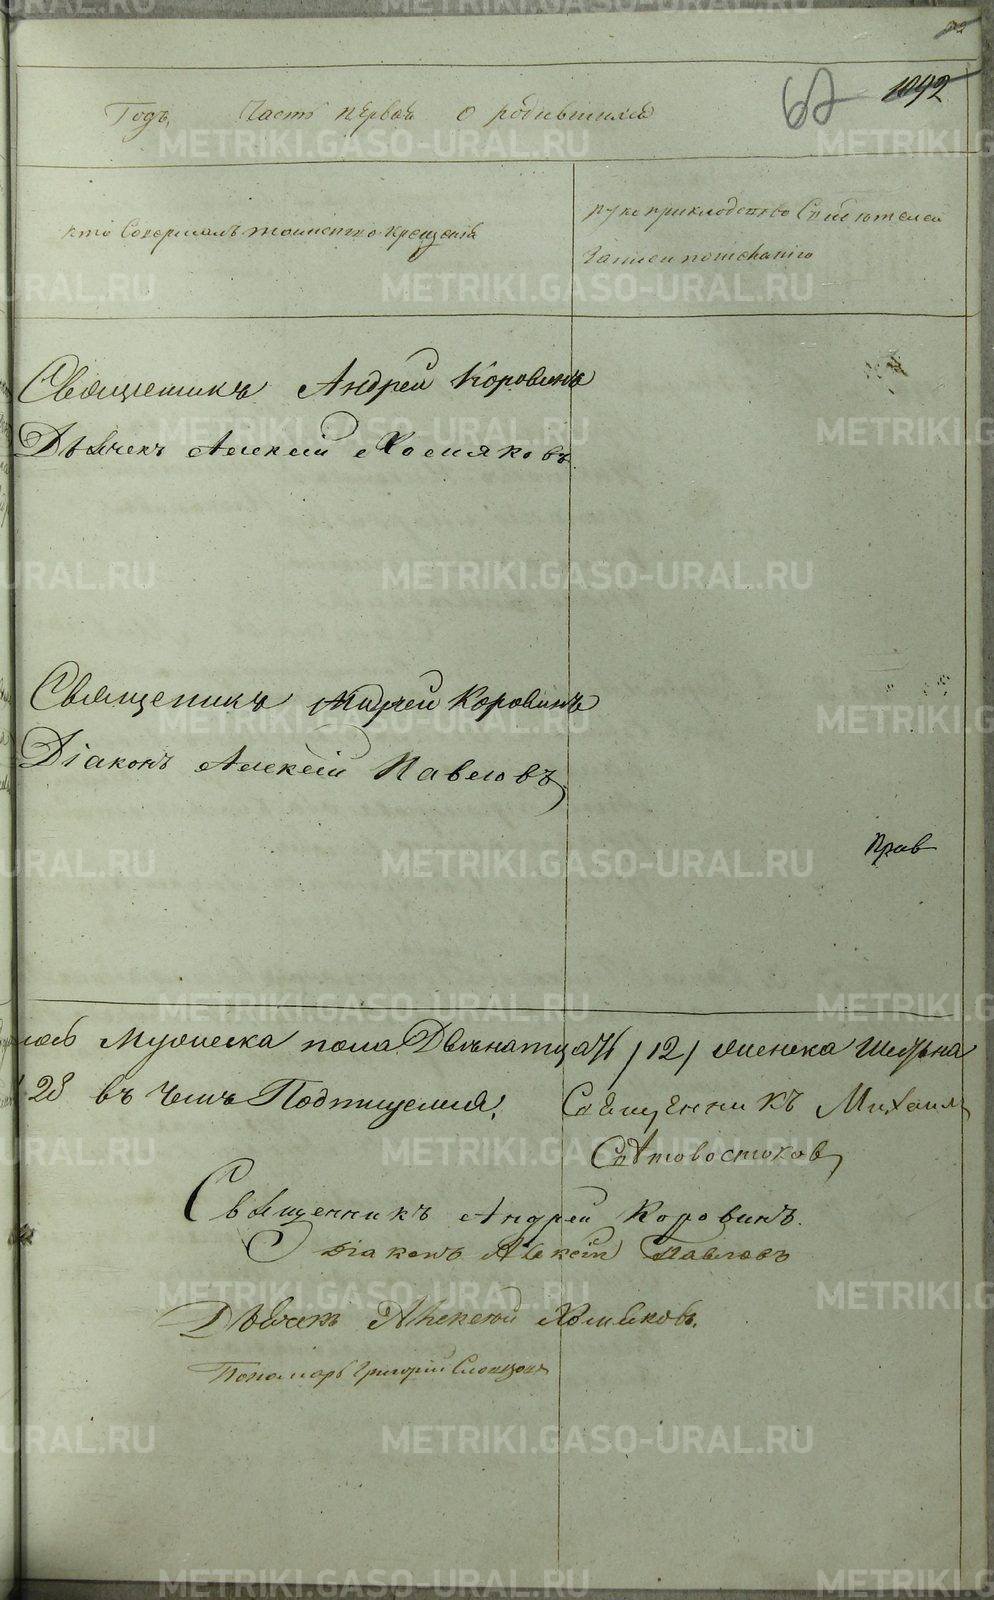 67 1092
Годъ, Часть первая о родившихся
кто Совершалъ таинство крещенiя
рукоприкладство Свидетелей
записи по желанiю
Священникъ Андрей Коровинъ
Дьячекъ Алексiй Хомяковъ
Священникъ Андрей Коровинъ
Дiаконъ Алексiй Павловъ
Прав
лось Мужеска пола Двенатцать /12/ женска
28 въ чемъ Подпишемся, Священникъ Михаил
Священникъ Андрей Коровинъ.
Дiаконъ Алексiй Павловъ
Дьячекъ Алексей Хомяковъ.
Пономарь Григорiй
METRIKI.GASO-URAL.RU